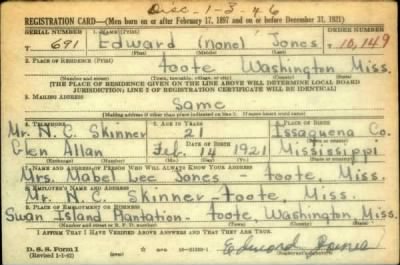 Disc. 1-3-46
REGISTRATION CARD—(Men born on or after February 17, 1897 and on or before December 31, 1921)
SERIAL NUMBER 1. NAME (Print) ORDER NUMBER
T 691 Edward (None) Jones T 10,149
(First) (Middle) (Last)
2. PLACE OF RESIDENCE (Print)
Foote Washington Miss.
(Number and street) (Town, township, village, or city) (County) (State)
[THE PLACE OF RESIDENCE GIVEN ON THE LINE ABOVE WILL DETERMINE LOCAL BOARD
JURISDICTION; LINE 2 OF REGISTRATION CERTIFICATE WILL BE IDENTICAL]
3. MAILING ADDRESS
Same
[Mailing address if other than place indicated on line 2. If same insert word same]
4. TELEPHONE 5. AGE IN YEARS 6. PLACE OF BIRTH
Mr. N. C. Skinner 21 Issaquena Co.
DATE OF BIRTH (Town or county)
Glen Allan Feb. 14 1921 Mississippi
(Exchange) (Number) (Mo.) (Day) (Yr.) (State or country)
7. NAME AND ADDRESS OF PERSON WHO WILL ALWAYS KNOW YOUR ADDRESS
Mrs. Mabel Lee Jones - Foote, Miss.
8. EMPLOYER'S NAME AND ADDRESS
Mr. N. C. Skinner - Foote, Miss.
9. PLACE OF EMPLOYMENT OR BUSINESS
Swan Island Plantation - Foote, Washington, Miss.
(Number and street or R. F. D. number) (Town) (County) (State)
I AFFIRM THAT I HAVE VERIFIED ABOVE ANSWERS AND THAT THEY ARE TRUE.
D. S. S. Form 1
(Revised 1-1-42) (over) Edward Jones
(Registrant's signature)